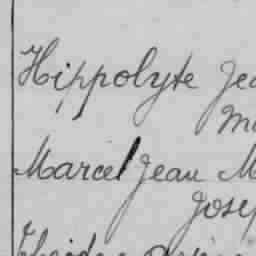 Hippolyte Je
Ma
Marcel Jean M
Josep